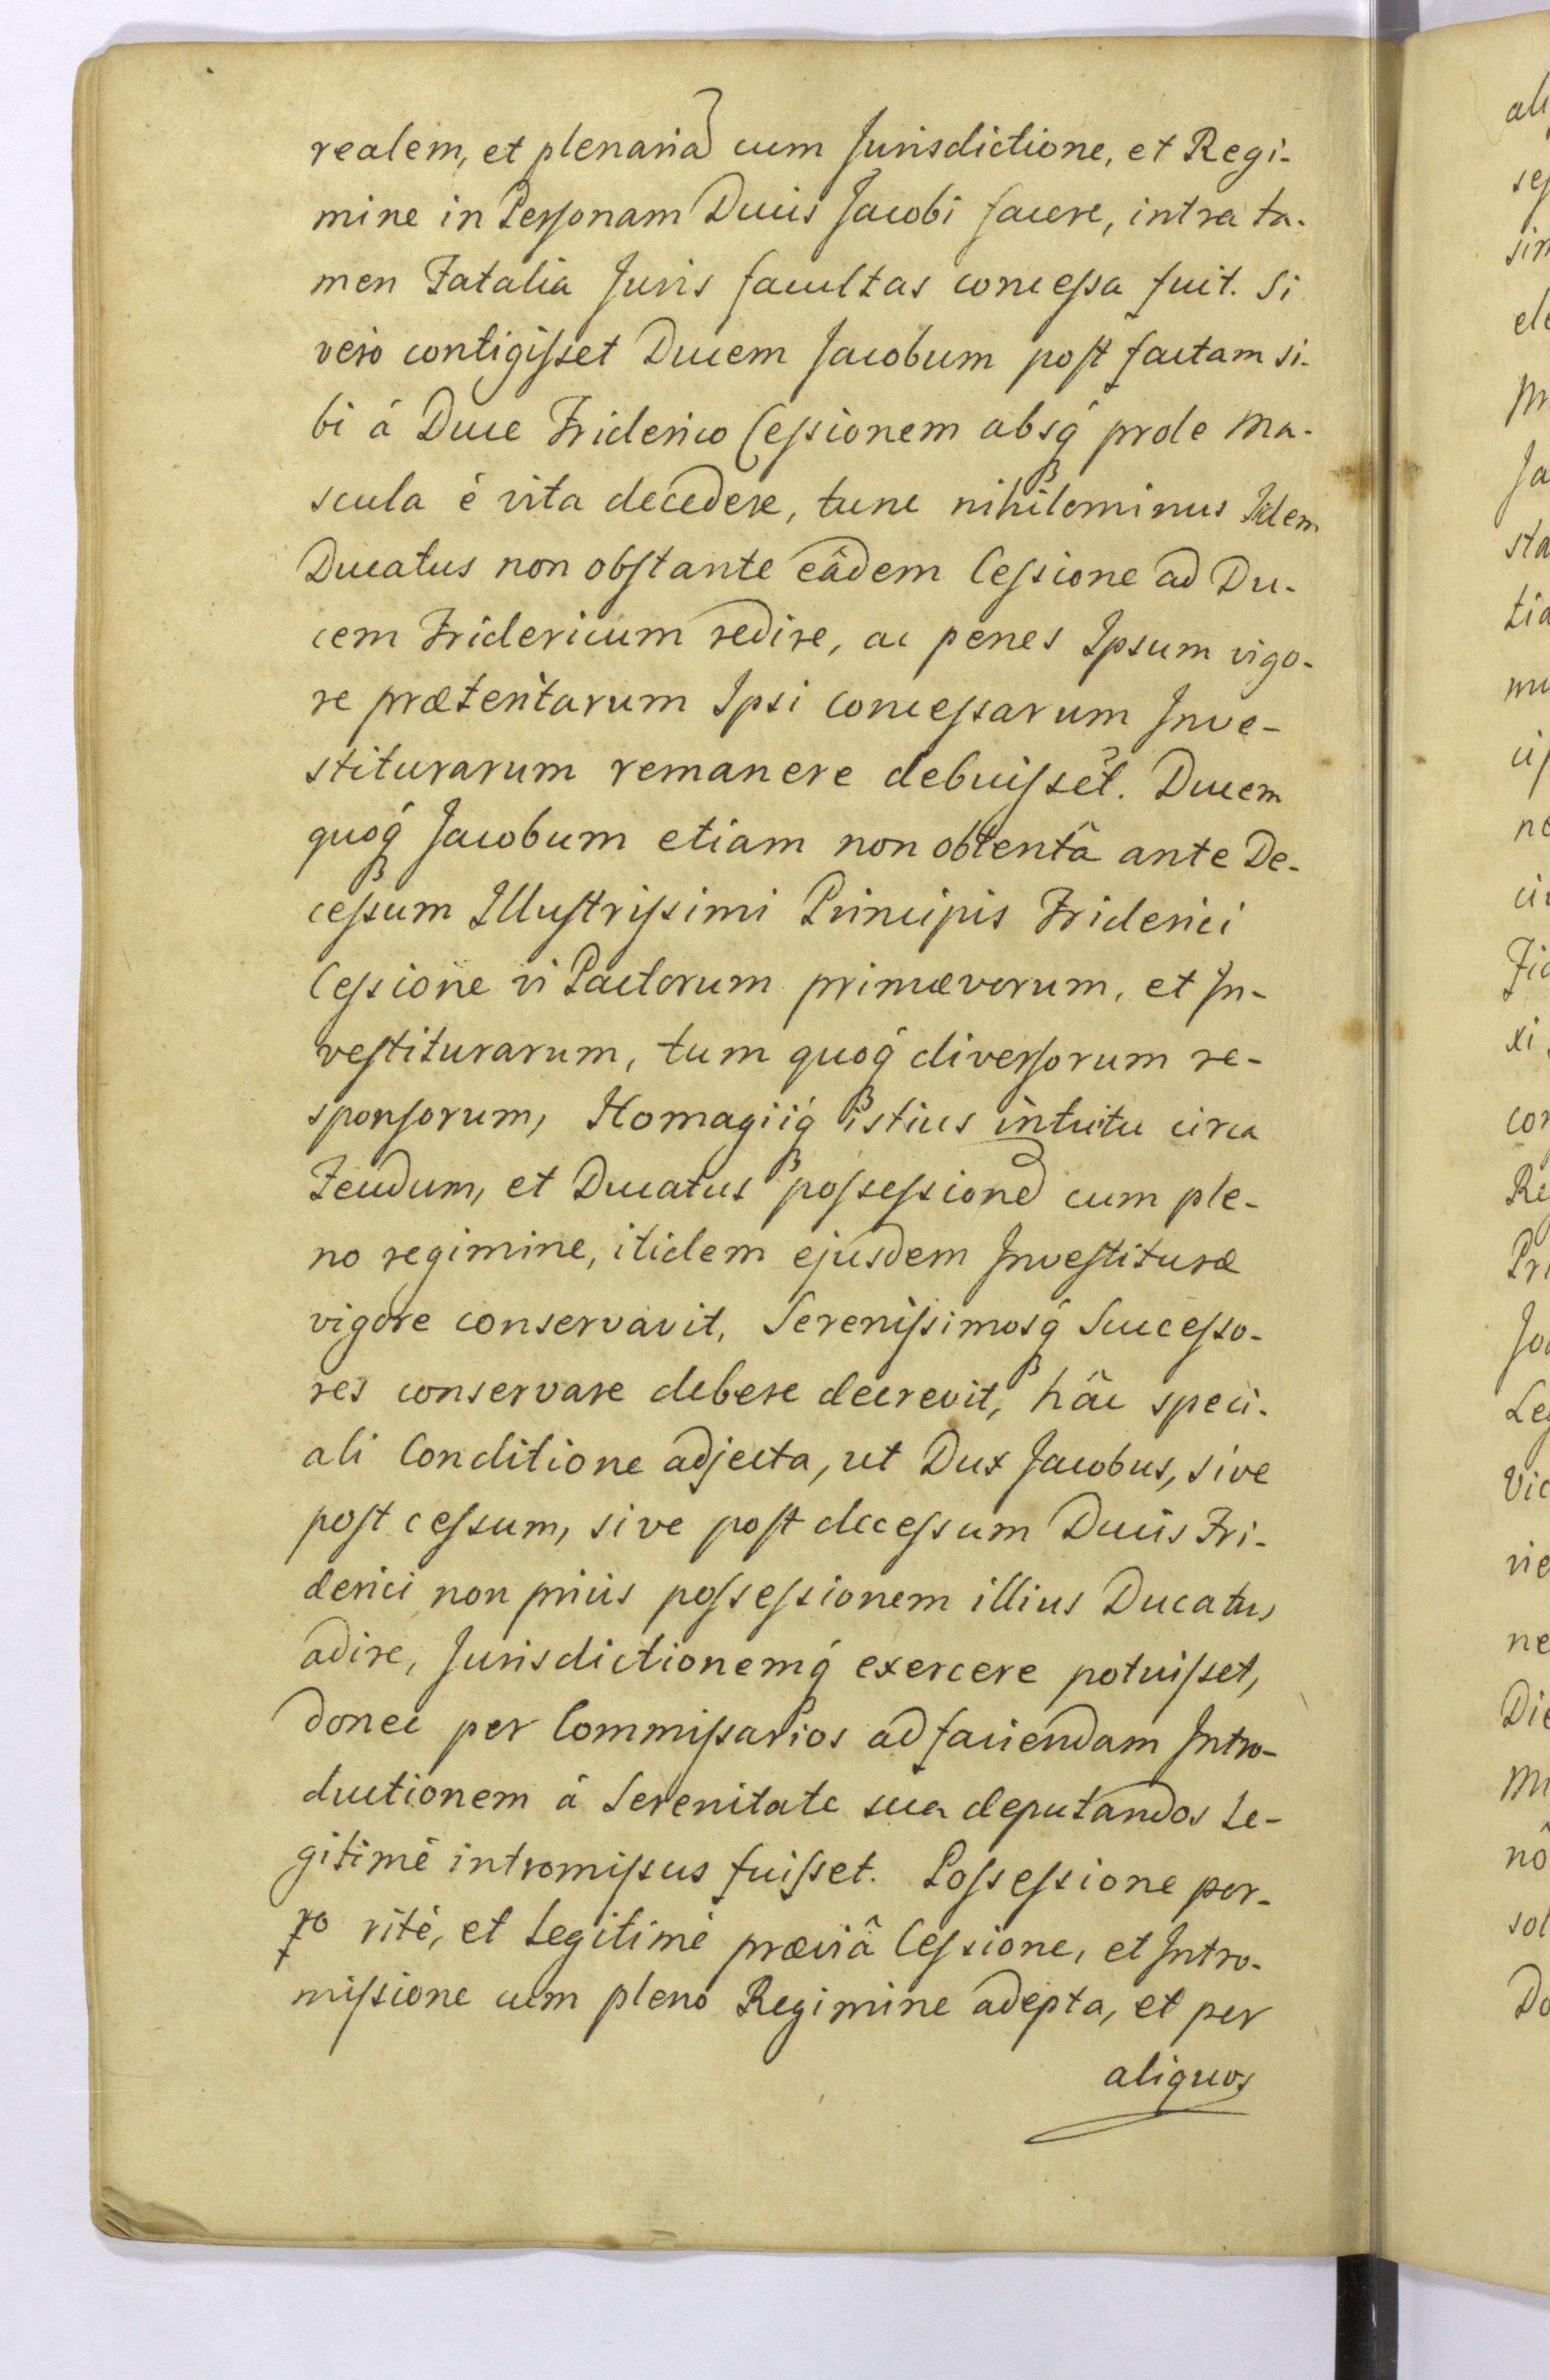 realem, et plenaria͠ cum Jurisdictione, et Regi-
mine in Personam Ducis Jacobi facere, intra ta-
men Fatalia Juris facultas concessa fuit. Si
verò contigisset Ducem Jacobum post factam si-
bi á Duce Friderico Cessionem absq́ prole Ma-
scula è vita decedere, tunc nihilominus Idem
Ducatus non obstante eâdem Cessione ad Du-
cem Fridericum redire, ac penes Ipsum vigo-
re prætentarum Ipsi concessarum Inve-
stiturarum remanere debuisset. Ducem
quoq́ Jacobum etiam non obtentâ ante De-
cessum Illustrissimi Principis Friderici
Cessione vi Pactorum primævorum, et In-
vestiturarum, tum quoq́ diversorum re-
sponsorum, Homagiiq́ istius intuitu circa
Feudum, et Ducatus possessione͠ cum ple-
no regimine, itidem ejusdem Investituræ
vigore conservavit, Serenissimosq́ Successo-
res conservare debere decrevit, hâc speci-
ali Conditione adjecta, ut Dux Jacobus, sive
post cessum, sive post decessum Ducis Fri-
derici non priùs possessionem illius Ducatus
adire, Jurisdictionemq́ exercere potuisset,
donec per Commissarios ad faciendam Intro-
ductionem á Serenitate sua deputandos Le-
gitimè intromissus fuisset. Possessione por-
ro ritè, et Legitimè præviâ Cessione, et Intro-
missione cum pleno Regimine adepta, et per
aliquos
ali
ses
sin
ele
Ja
sta
tia
nu
cis
ne
xi
con
Re
Pri
Jo
Leg
Vic
vie
ne
Die
nô
sol
Do